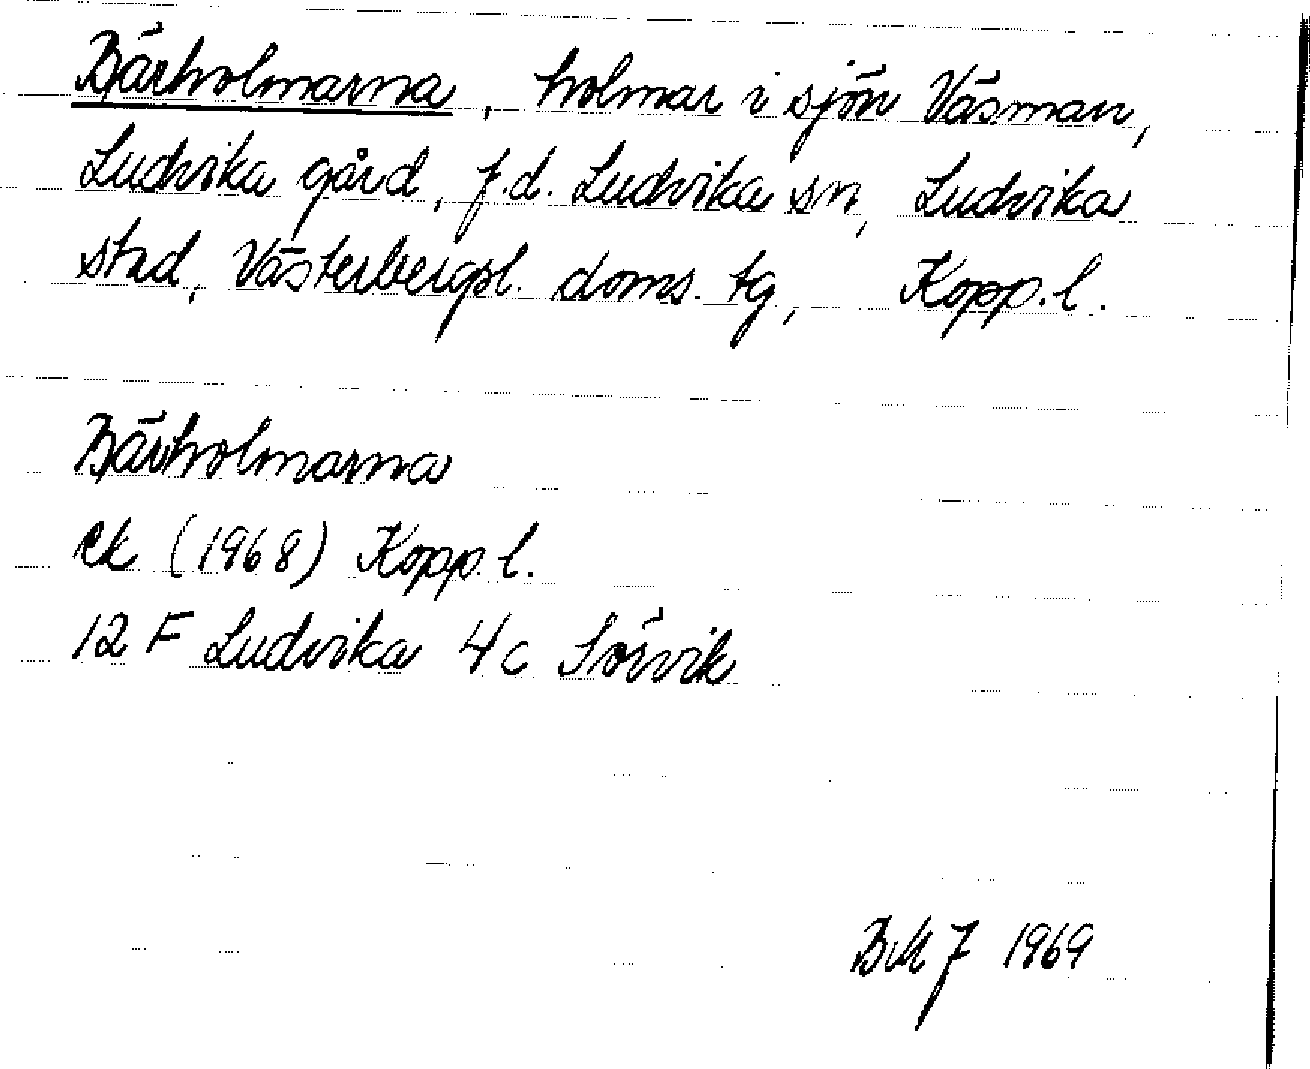 Bärholmarna, holmar i sjön Väsman,
Ludvika gård, f.d. Ludvika sn, Ludvika
stad, Västerbergsl. doms. tg, Kopp. l.
Bärholmarna
ek (1968) Kopp. l.
12 F Ludvika 4 c Sörvik
1969